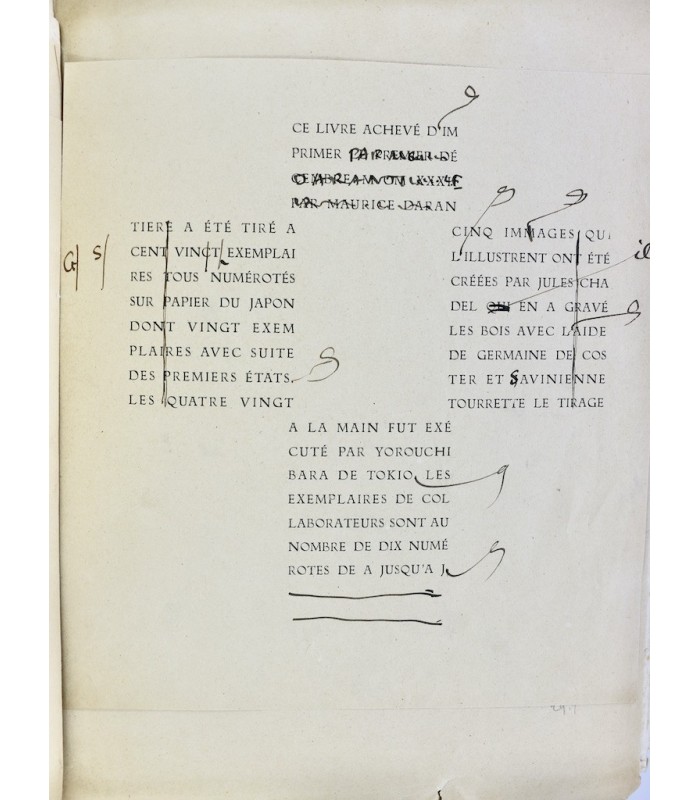 CE LIVRE ACHEVÉ D'IM
PRIMER PREMIER DÉ
PAR MAURICE DARAN
TIERE A ÉTÉ TIRÉ A
CENT VINGT EXEMPLAI
RES TOUS NUMÉROTÉS
SUR PAPIER DU JAPON
DONT VINGT EXEM
PLAIRES AVEC SUITE
DES PREMIERS ÉTATS.
LES QUATRE VINGT
G S
CINQ IMMAGES QUI
L'ILLUSTRENT ONT ÉTÉ
il
CRÉÉES PAR JULES CHA
DEL QUI EN A GRAVÉ
LES BOIS AVEC L'AIDE
DE GERMAINE DE COS
TER ET SAVINIENNE
TOURRETTE LE TIRAGE
A LA MAIN FUT EXÉ
CUTÉ PAR YOROUCHI
BARA DE TOKIO. LES
EXEMPLAIRES DE COL
LABORATEURS SONT AU
NOMBRE DE DIX NUMÉ
ROTES DE A JUSQU'A J.